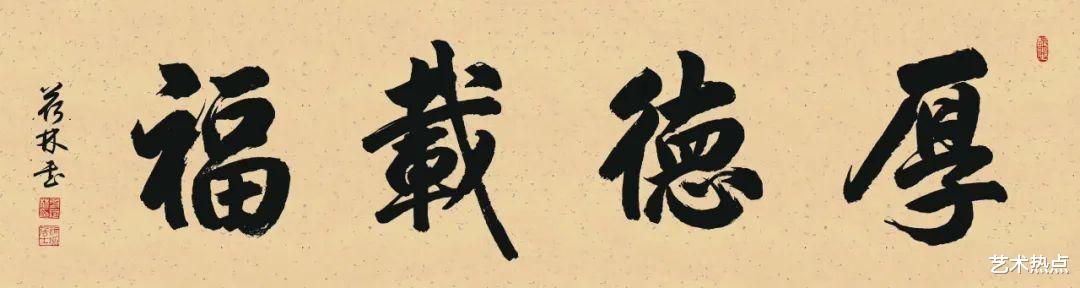 厚德載福
艺术热点